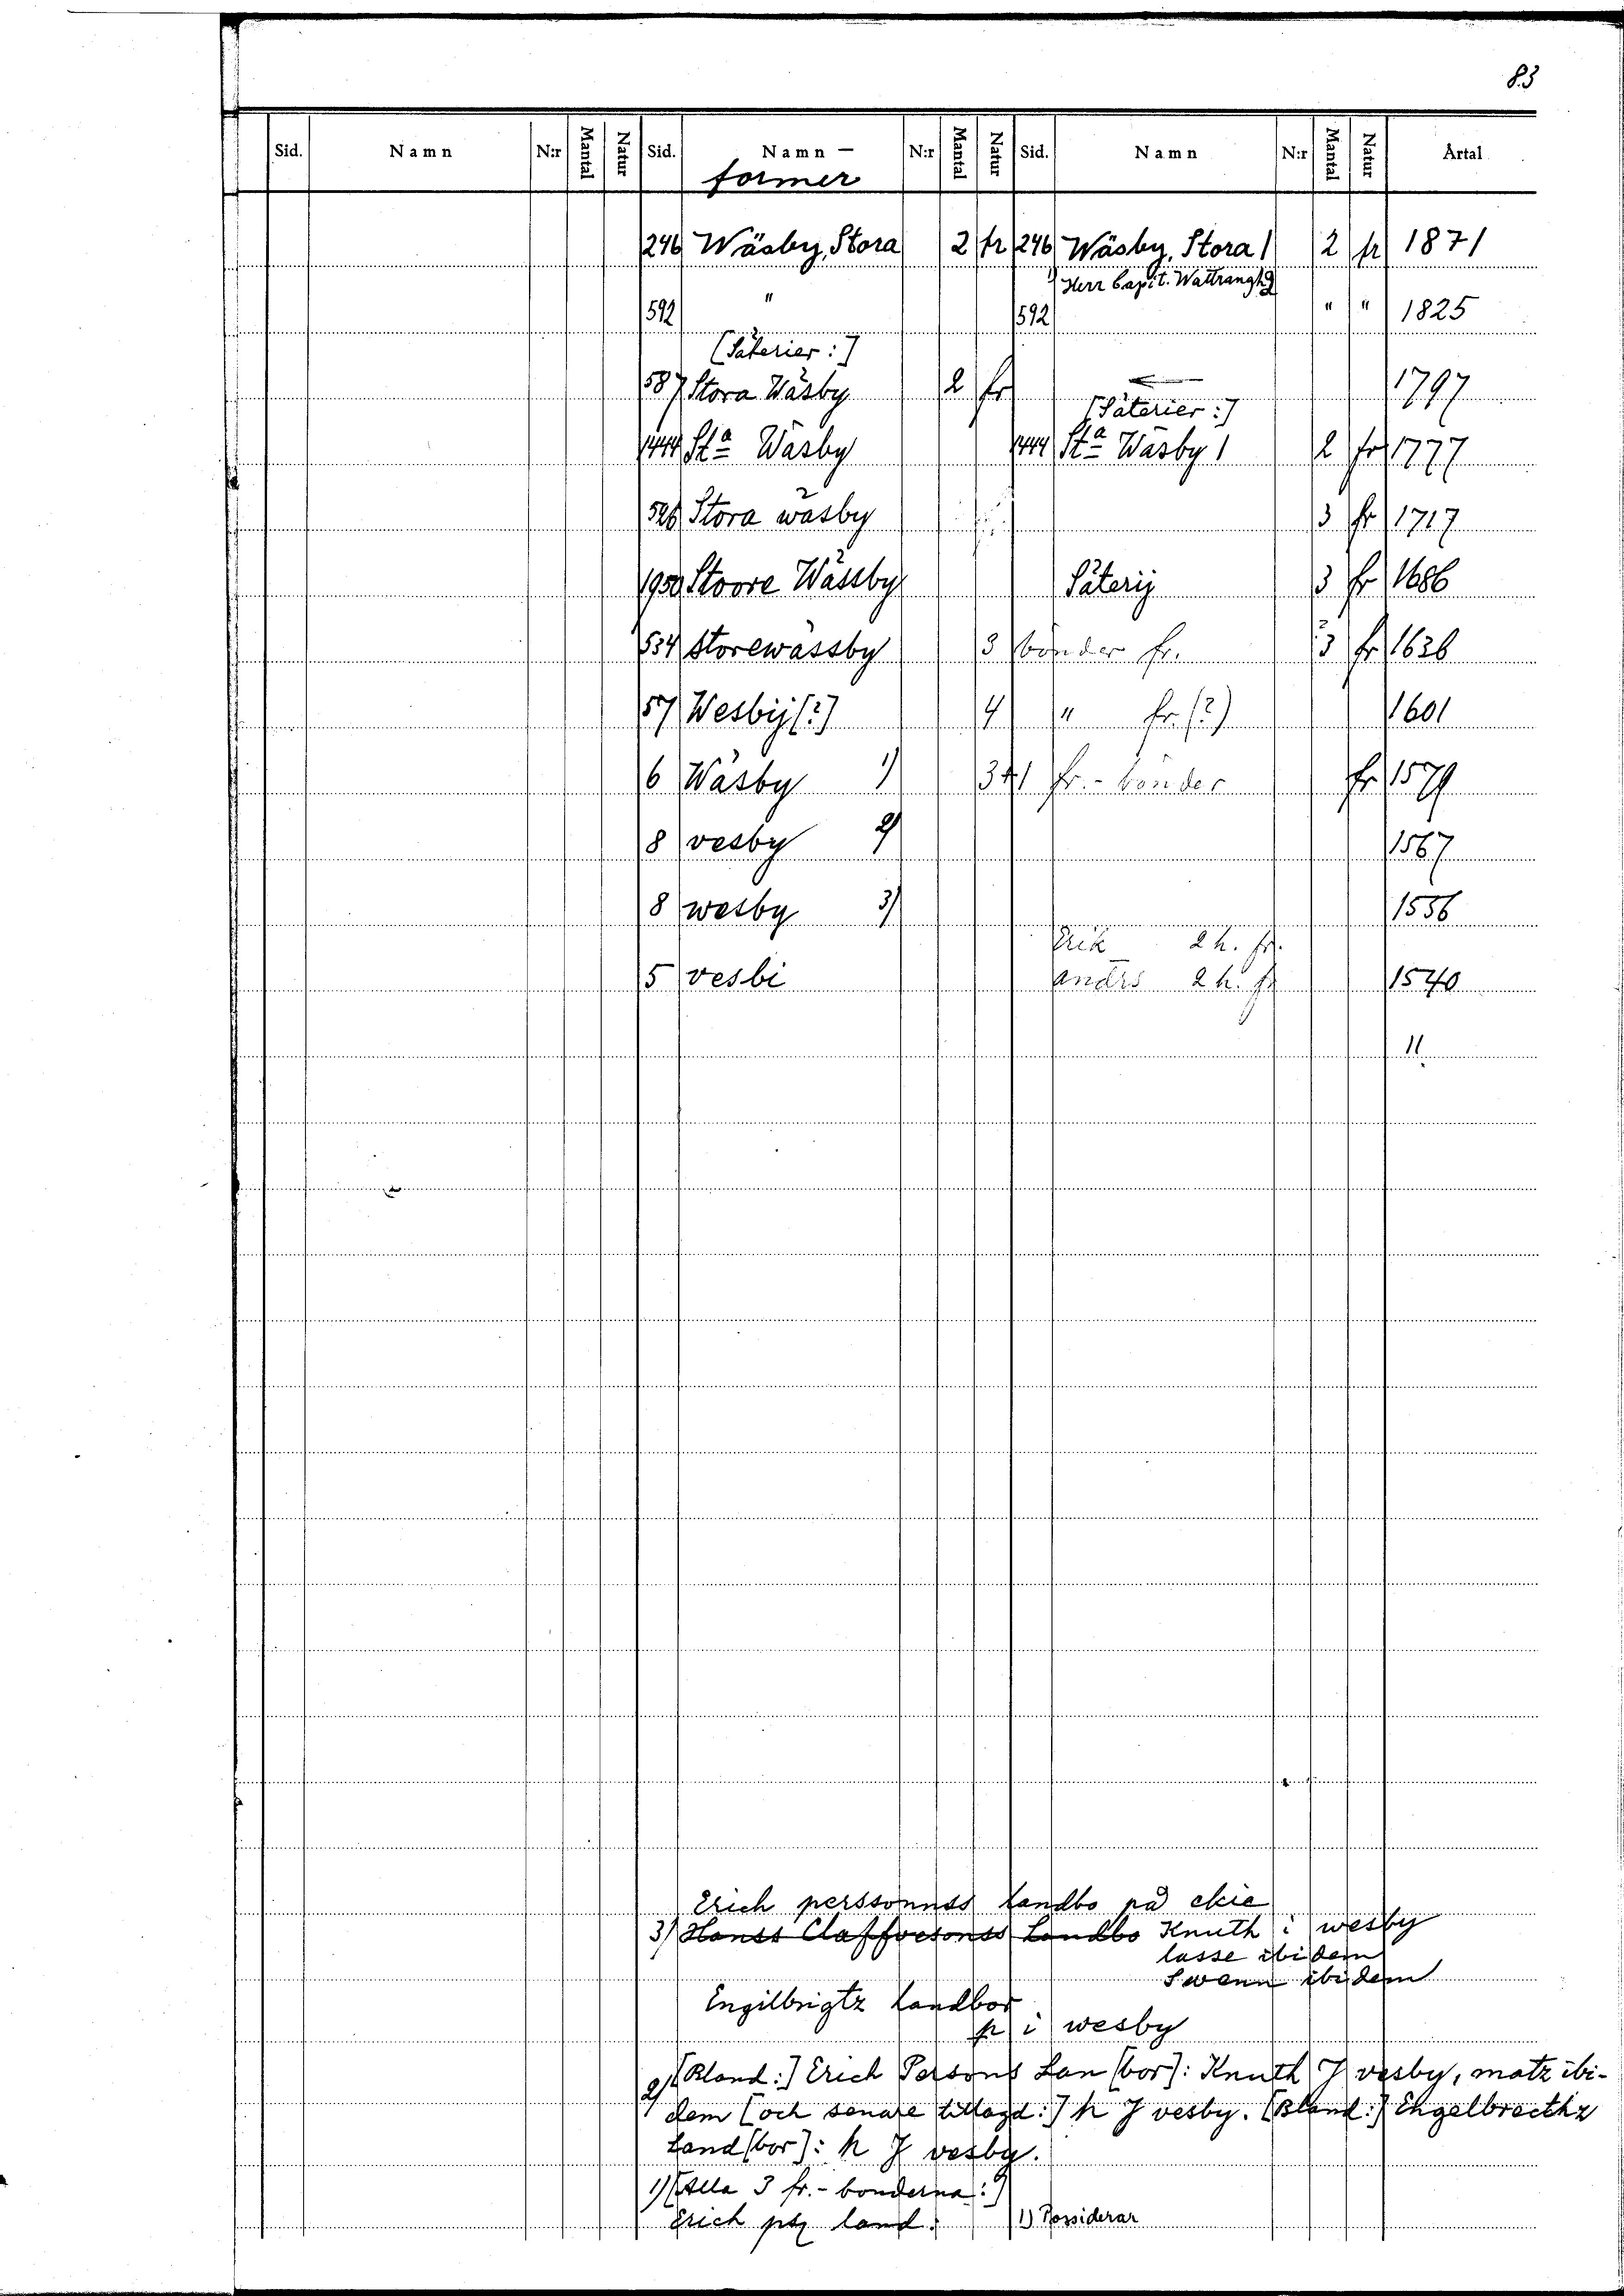 83
Sid. Namn N:r Mantal Natur Sid. Namn – N:r Mantal Natur Sid. Namn N:r Mantal Natur Årtal
former
246 Wäsby, Stora 2 fr 246 Wäsby, Stora 1 2 fr 1871
1) Herr Capit. Wattrangh
592 " 592 " " 1825
[Säterier:]
587 Stora Wäsby 2 fr 1797
[Säterier:]
1444 Sta Wäsby 1444 Sta Wäsby 1 2 fr 1777
526 Stora wäsby 3 fr 1717
1950 Stoore Wässby Säterij 3 fr 1686
534 storewässby 3 bönder fr. 3 fr 1626
57 Wesbij(?) 4 " fr. (?) 1601
6 Wäsby 1) 3 fr.- bönder fr 1579
8 vesby 2) 1567
8 wesby 3) 1556
Erik 2 h. fr.
5 vesbi Andrs 2 h. fr 1540
"
Erich perssonnss landbo på ekie
3) Hanss Claffvesonss Landbo Knuth i wesby
lasse ibidem
Swenn ibidem
Engilbrigtz landbor
h i wesby
2) [Bland:] Erich Persons Lan[bor]: Knuth J vesby, matz ibi-
dem [och senare tillagd:] h J vesby. [Bland:] Engelbrecthz
Land[bor]: h J vesby.
1) [Alla 3 fr.- bönderna:]
Erich psz land.
1) Possiderar